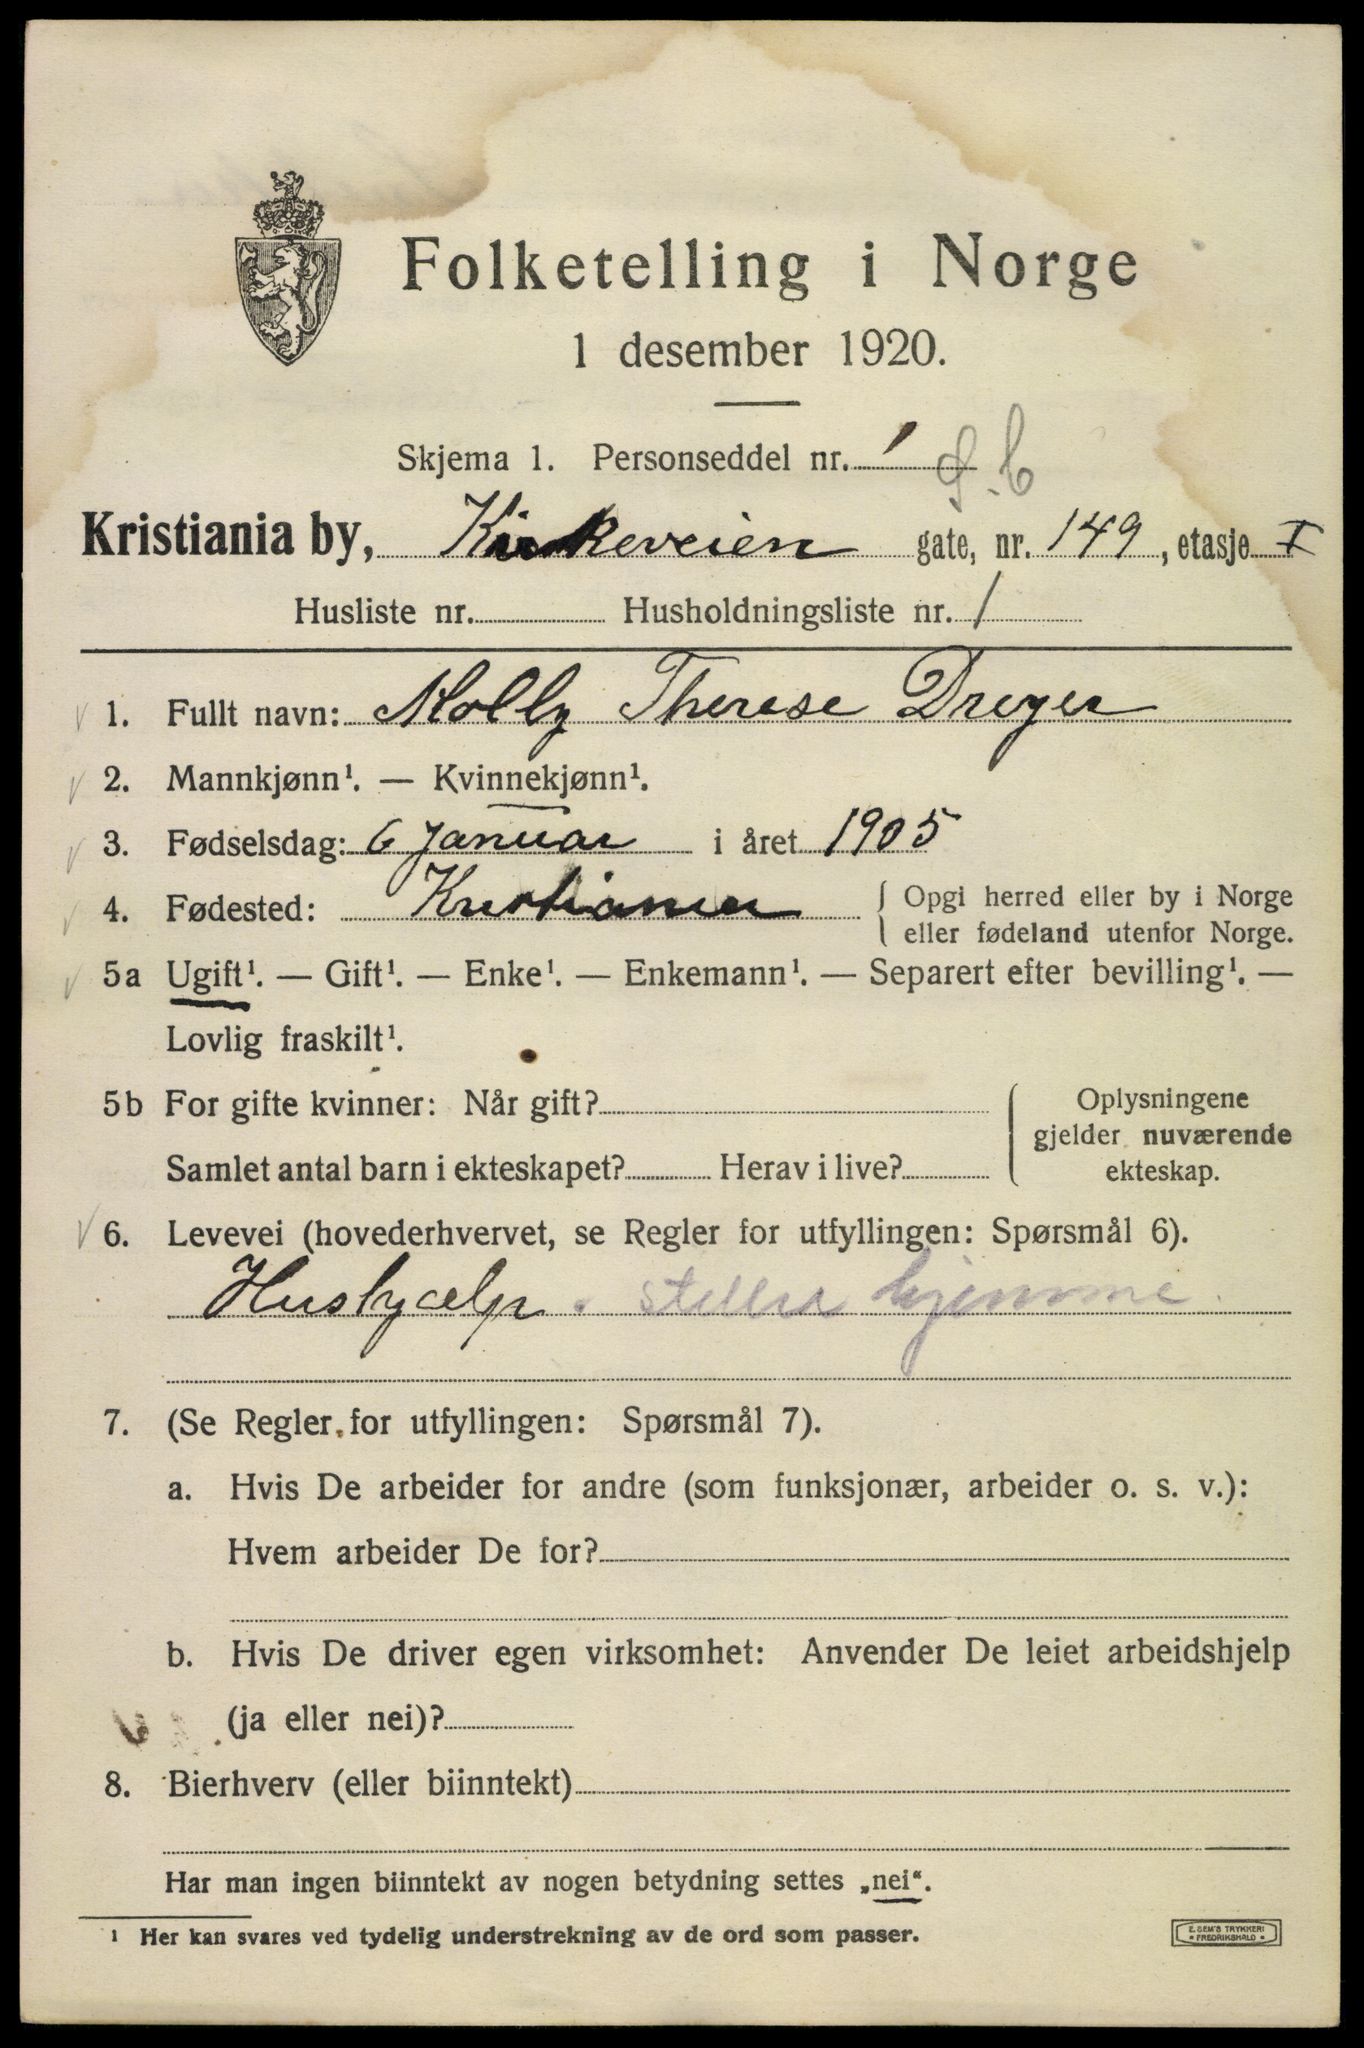 Folketelling i Norge
1 desember 1920.
Skjema 1. Personseddel nr. 1
Kristiania by, Kirkeveien gate, nr. 149, etasje I
Husliste nr. Husholdningsliste nr. 1
1. Fullt navn: Molly Therese Dreyer
2. Mannkjønn¹. — Kvinnekjønn¹.
3. Fødselsdag: 6 januar i året 1905
4. Fødested: Kristiania { Opgi herred eller by i Norge
eller fødeland utenfor Norge.
5a Ugift¹. — Gift¹. — Enke¹. — Enkemann¹. — Separert efter bevilling¹. —
Lovlig fraskilt¹.
5b For gifte kvinner: Når gift? Oplysningene
gjelder nuværende
Samlet antal barn i ekteskapet? Herav i live? ekteskap.
6. Levevei (hovederhvervet, se Regler for utfyllingen: Spørsmål 6).
Hushjælp. steller hjemme.
7. (Se Regler for utfyllingen: Spørsmål 7).
a. Hvis De arbeider for andre (som funksjonær, arbeider o. s. v.):
Hvem arbeider De for?
b. Hvis De driver egen virksomhet: Anvender De leiet arbeidshjelp
(ja eller nei)?
8. Bierhverv (eller biinntekt)
Har man ingen biinntekt av nogen betydning settes „nei“.
¹ Her kan svares ved tydelig understrekning av de ord som passer.
E. SEM'S TRYKKERI
FREDRIKSHALD